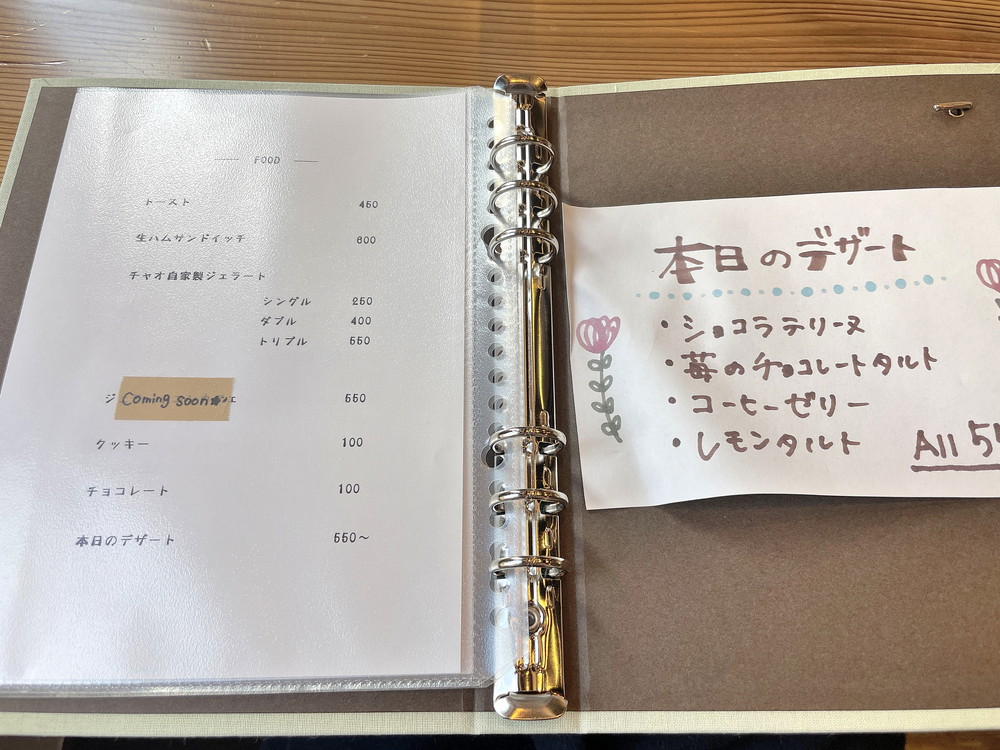 FOOD
トースト 450
生ハムサンドイッチ 600
チャオ自家製ジェラート
シングル 250
ダブル 400
トリプル 550
ジ Coming soon 550
クッキー 100
チョコレート 100
本日のデザート 550〜
本日のデザート
・ショコラテリーヌ
・苺のチョコレートタルト
・コーヒーゼリー
・レモンタルト
All 5